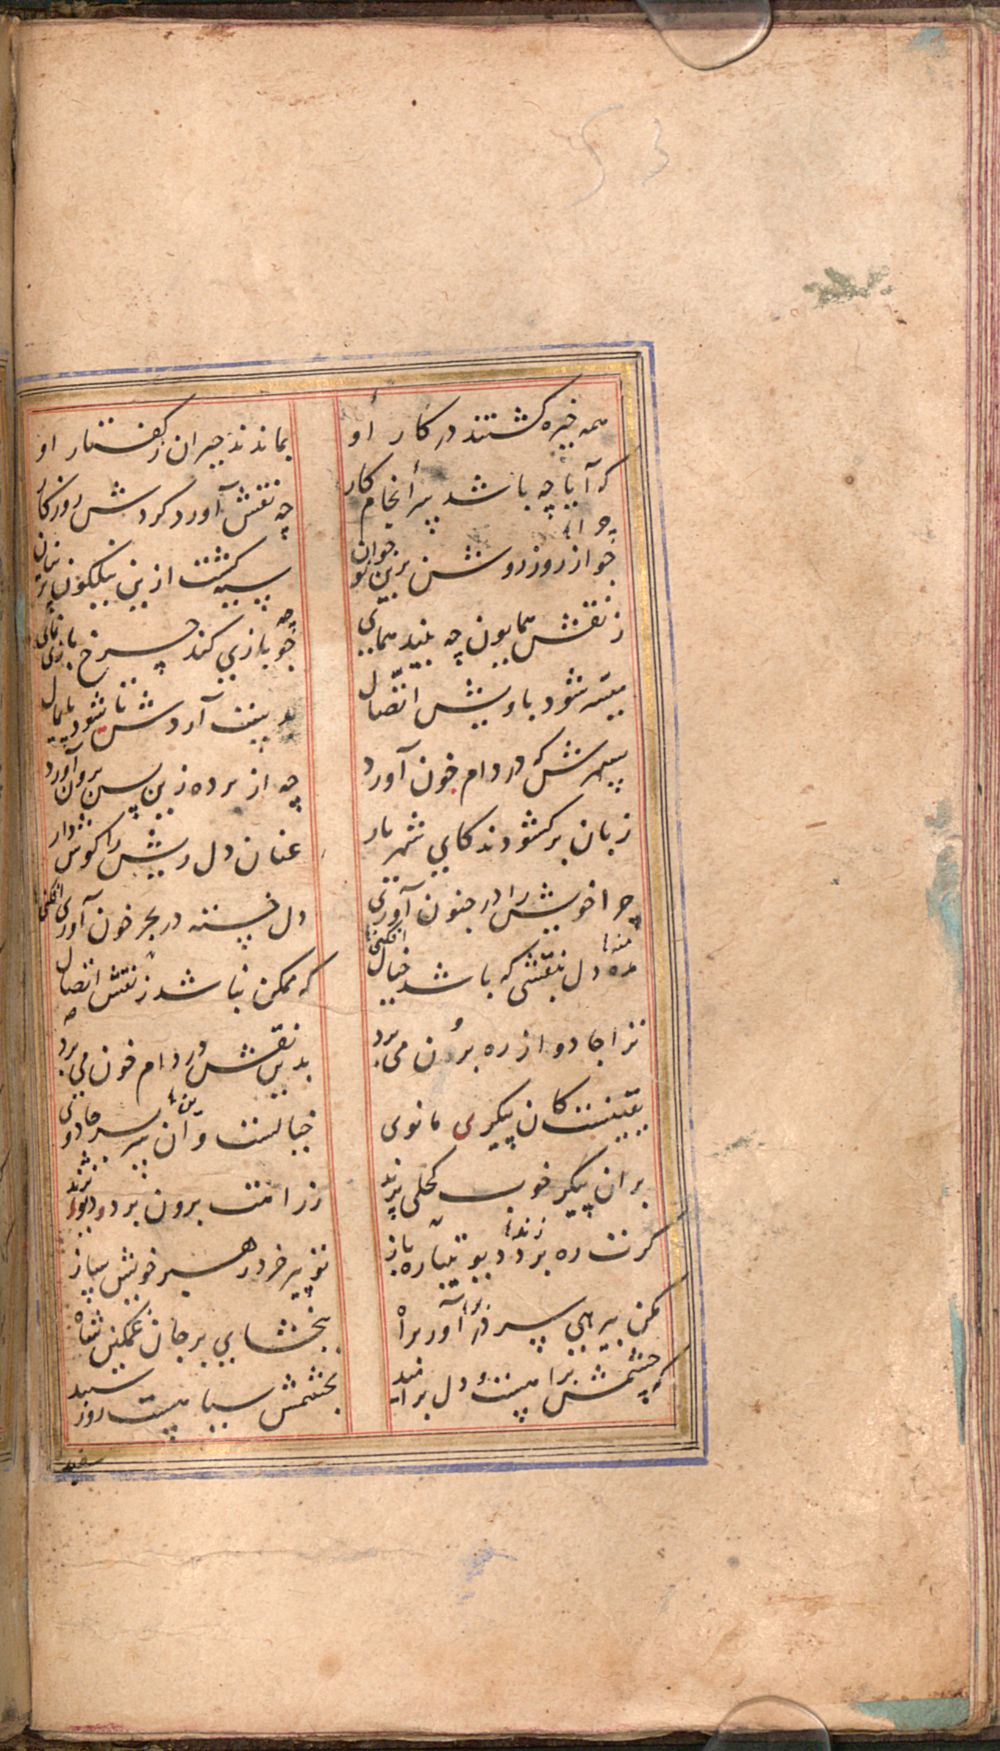 همه خیره کشتند در کار او
بماندند حیران ز کفتار او
که آیا چه باشد سرانجام کار
چه نقش آورد کردش روزکار
چو از روز روشن برین
سیه کشت ازین نیلکون پرنیان
ز نقش همایون چه بیند همای
چو بازی کند چرخ بازی نمای
میسر شود با ویش اتّصال
بدستت آردش تا شود پایمال
سپهرش که در دام خون آورد
چه از پرده زین پس برون آورد
زبان برکشودند کای شهریار
عنان دل ریش را کوش دار
چرا خویش را در جنون آوری
دل خسته در بحر خون آوری
مده دل بنقشی که باشد خیال
که ممکن نباشد ز نقش اتصال
ترا جادو از ره برون می برد
بدین نقش در دام خون می برد
یقینست کان پیکری مانوی
خیالست وان سر بسر جادوی
بران پیکر خوب کحلی پرند
ز راهت برون برد دیو نژند
کرت ره برد دیو تیاره باز
تو پیر خرد رهبر خویش ساز
مکن بیرهی سر درآور براه
ببخشای بر جان غمکین شاه
که چشمش براهست و دل بر امید
بچشمش سیاهست روز سپید